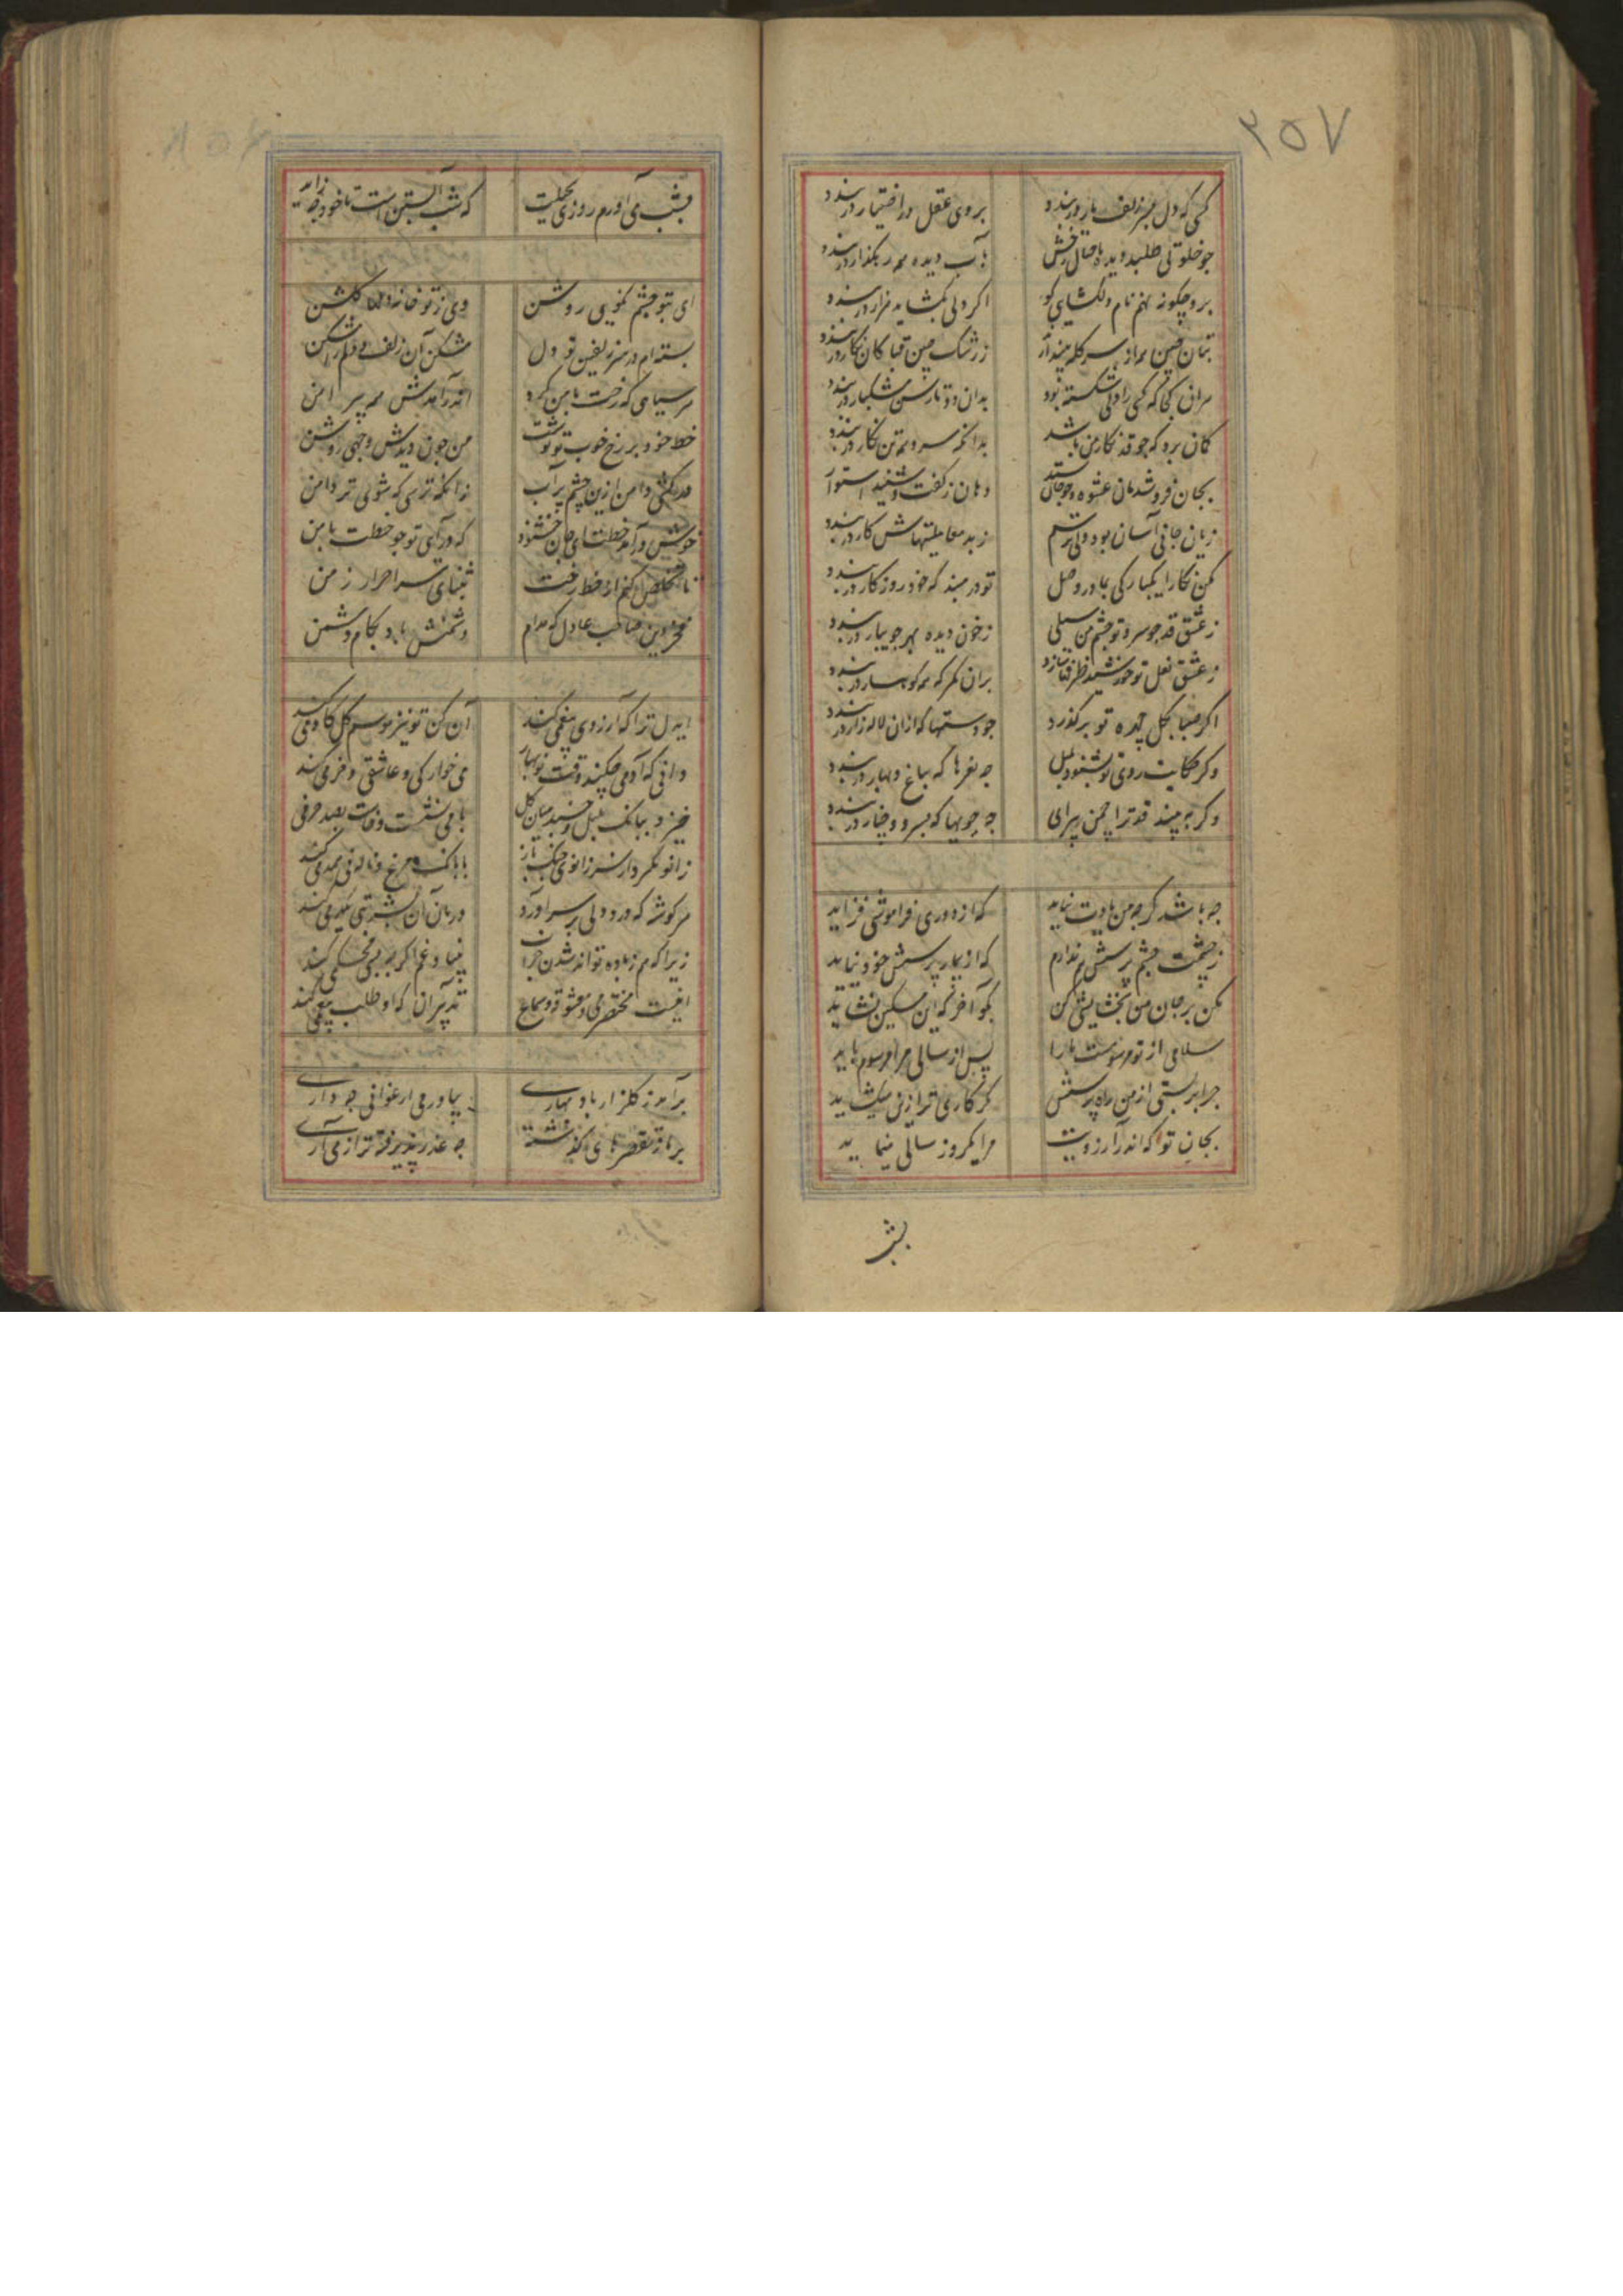 ۳۵۷
کسی که دل بسر زلف یار در بندد بروی عقل در اختیار در بندد
جو خلوتی طلبد دیده با خیال رخش بآب دیده همه رهکذار در بندد
برو چکونه نهم نام دلکشایی کو اکر دلی بکشاید هزار در بندد
بتان چین همه از سر کله بیندازند ز رشک چین قبا کان نکار در بندد
هر آن کجا که کسی را دلی شکسته بود بدان دو تا رسن مشکبار در بندد
کمان برد که جو قد نکار من باشد بدانکه سرو به تن نکار در بندد
بجان فروشد مانی عشوه و جو جان ستد دهان ز کفت و شنید استوار
زیان جانی آسان بود ولی ترسم ز بد معاملتیهاش کار در بندد
مکن نکارا یکبارکی بما در وصل تو در مبند که خود روزکار در بندد
ز عشق قد جو سرو تو جشم من سیلی ز خون دیده بهر جویبار در بندد
ز عشق لعل تو خورشید بر آن کمر که به کوهسار در بندد
اکر صبا بکل جهره تو بر کذرد جو دستها که از آن لاله زار در بندد
وکر حکایت روی تو بشنود بلبل جه نغزها که بباغ و بهار در بندد
وکر به بیند قد ترا جمن پیرای جه جوبها که بسرو و چنار در بندد
جه باشد کر جه من یادت نیاید که از دوری فراموشی فزاید
ز جشمت جشم پرسش هم ندارم که از بیمار پرسش خود نیاید
مکن بر جان من بخشایشی کن بکو آخر که این مسکین نشاید
سلامی از تو مرسومست ما را پس از سالی مرا مرسوم باید
جرا بربستی از من راه پرسش کر کاری ترا زین میکشاید
بجان تو که اندر آرزویت مرا یکروز سالی مینماید
بشب
بشب می آورم روزی بحیلت که شب آبستن است تا خود جه زاید
ای بتو جشم نکویی روشن وی ز تو خانه دلها کلشن
بسته ام در سر زلفین تو دل مشکن آن زلف و دلم را مشکن
هر سیاهی که رخت با من کرد اندر آمدش به پیرامن
خط خود بر رخ خوب تو نوشت من جون دیدمش وجهی روشن
در نکشی دامن ازین جشم پر آب زانکه ترسی که شوی تر دامن
خوش در آمد خطت ای جان خشنود که در آی تو جو خطت با من
تا تخلص کنم از خط رخت بثنای سر احرار زمن
فخر دین صاحب عادل که مدام دشمنش باد بکام دشمن
ایدل ترا که آرزوی بیغمی کند آن کن تو نیز موسم کل کادمی کند
دانی که آدمی جکند وقت نوبهار می خوارکی و عاشقی و خرمی کند
خیزد ببانک بلبل و خسبد میان کل با می نشست و خاست بصد حرفی
زانو نکر دارد سر زانوی جنک باز با بانک مرغ و ناله نی همدمی کند
هر کوشه که درد دلی سر بر آورد درمان آن بشربتی کند
زیرا که هم زباده تواند شدن خراب بنیاد غم اکر جه بسی محکمی کند
اینست مختصر می و معشوقه و سماع تدبیر آن که او طلب بیغمی کند
برآمد ز کلزار باد بهاری بیاور می ارغوانی جه داری
بر باز تقصیرهای کذشته جه عذر پذیرفته تر از می آری